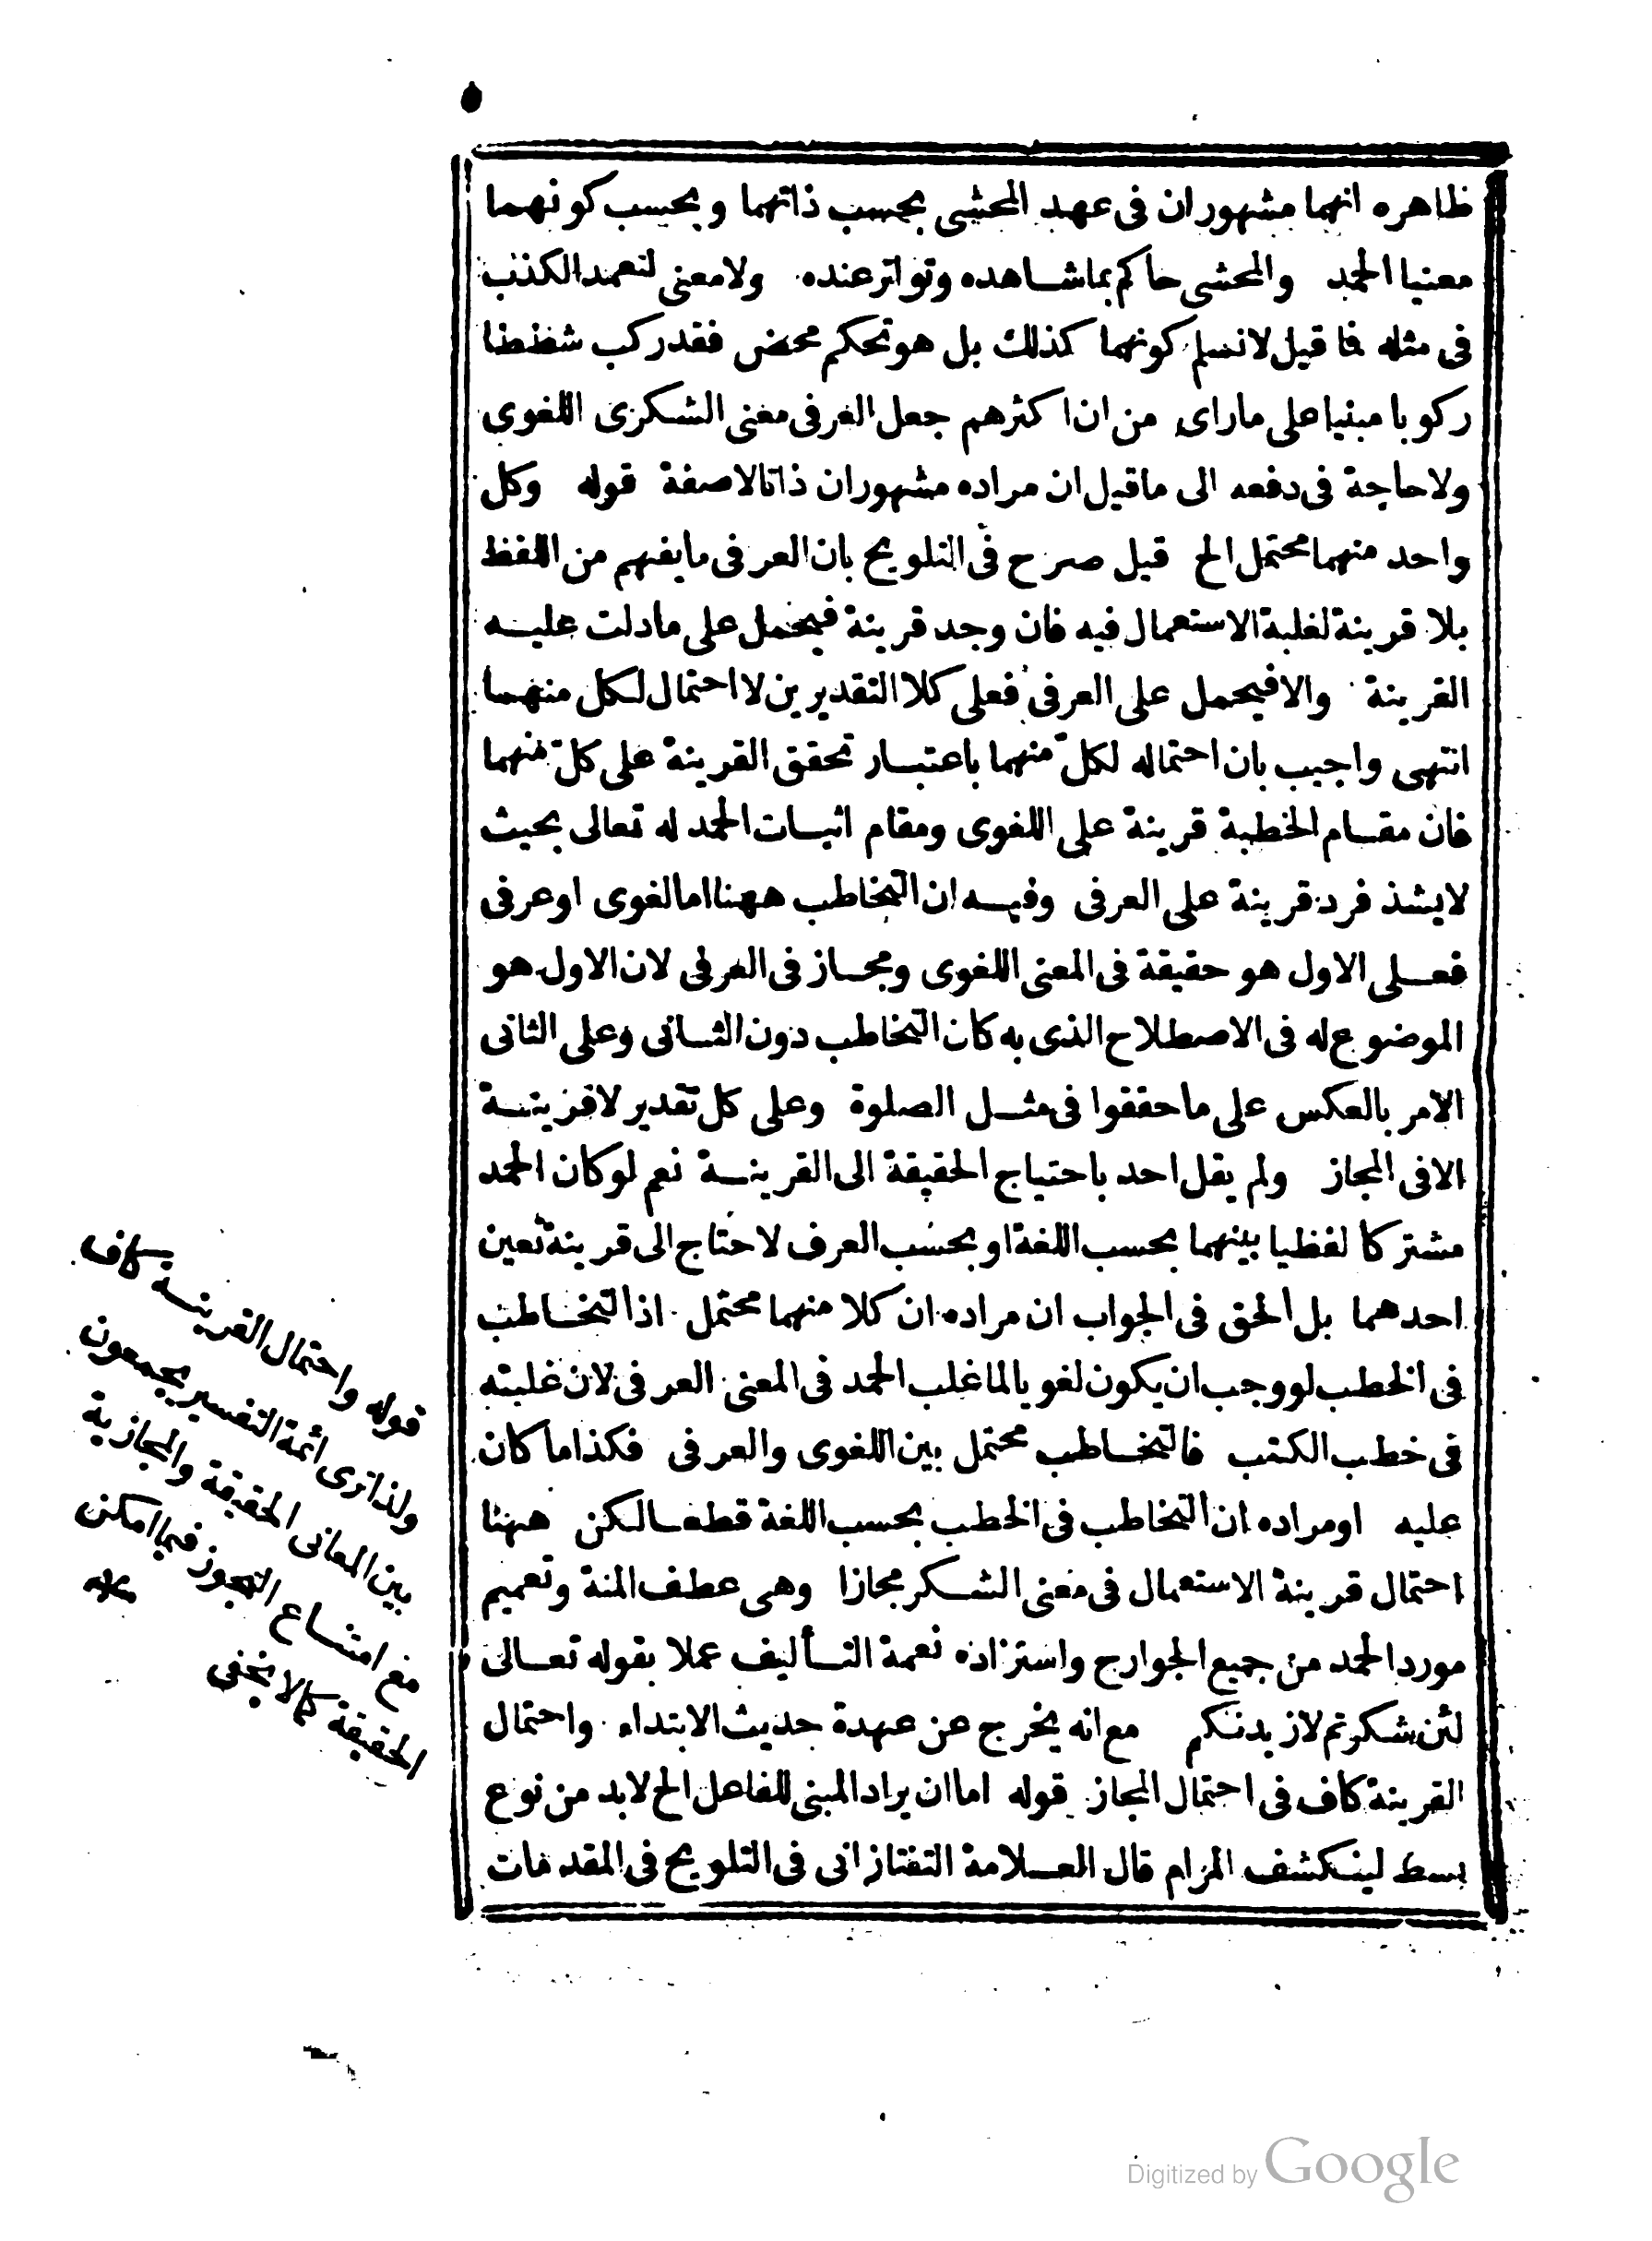 ٥
ظاهره انهما مشهوران فى عهد المحشى بحسب ذاتهما وبحسب كونهما
معنيا الحمد والمحشى حاكم بما شاهده وتواتر عنده ولا معنى لتعمد الكذب
فى مثله فا قيل لا نسلم كونهما كذلك بل هو تحكم محض فقد ركب شططا
ركوبا مبنيا على ما راى من ان اكثرهم جعل العرفى معنى الشكرى اللغوى
ولا حاجة فى دفعه الى ما قيل ان مراده مشهوران ذاتا لا صفة قوله وكل
واحد منهما محتمل الخ قيل صرح فى التلويح بان العرفى ما يفهم من اللفظ
بلا قرينة لغلبة الاستعمال فيه فان وجد قرينة فيحمل على ما دلت عليه
القرينة والا فيحمل على العرفى فعلى كلا التقديرين لا احتمال لكل منهما
انتهى واجيب بان احتماله لكل منهما باعتبار تحقق القرينة على كل منهما
فان مقام الخطبة قرينة على اللغوى ومقام اثبات الحمد له تعالى بحيث
لا يشذ فرد قرينة على العرفى وفيه ان التخاطب ههنا اما لغوى او عرفى
فعلى الاول هو حقيقة فى المعنى اللغوى ومجاز فى العرفى لان الاول هو
الموضوع له فى الاصطلاح الذى به كان التخاطب دون الثانى وعلى الثانى
الامر بالعكس على ما حققوا فى مثل الصلوة وعلى كل تقدير لا قرينة
الا فى المجاز ولم يقل احد باحتياج الحقيقة الى القرينة نعم لو كان الحمد
مشتركا لفظيا بينهما بحسب اللغة او بحسب العرف لاحتاج الى قرينة تعين
احدهما بل الحق فى الجواب ان مراده ان كلا منهما محتمل اذا التخاطب
فى الخطب لو وجب ان يكون لغويا لما غلب الحمد فى المعنى العرفى لان غلبته
فى خطب الكتب فالتخاطب محتمل بين اللغوى والعرفى فكذا ما كان
عليه او مراده ان التخاطب فى الخطب بحسب اللغة قطعا لكن ههنا
احتمال قرينة الاستعمال فى معنى الشكر مجازا وهى عطف المنة وتعميم
مورد الحمد من جميع الجوارح واستزاده نعمة التأليف عملا بقوله تعالى
لئن شكرتم لازيدنكم مع انه يخرج عن عهدة حديث الابتداء واحتمال
القرينة كاف فى احتمال المجاز قوله اما ان يراد المبنى للفاعل الخ لابد من نوع
بسط لينكشف المرام قال العلامة التفتازانى فى التلويح فى المقدمات
قوله واحتمال القرينة كاف
ولذا ترى ائمة التفسير يجمعون
بين المعانى الحقيقة والمجازية
مع امتناع التجوز فيما امكن
الحقيقة كما لا يخفى
منه
Digitized by Google